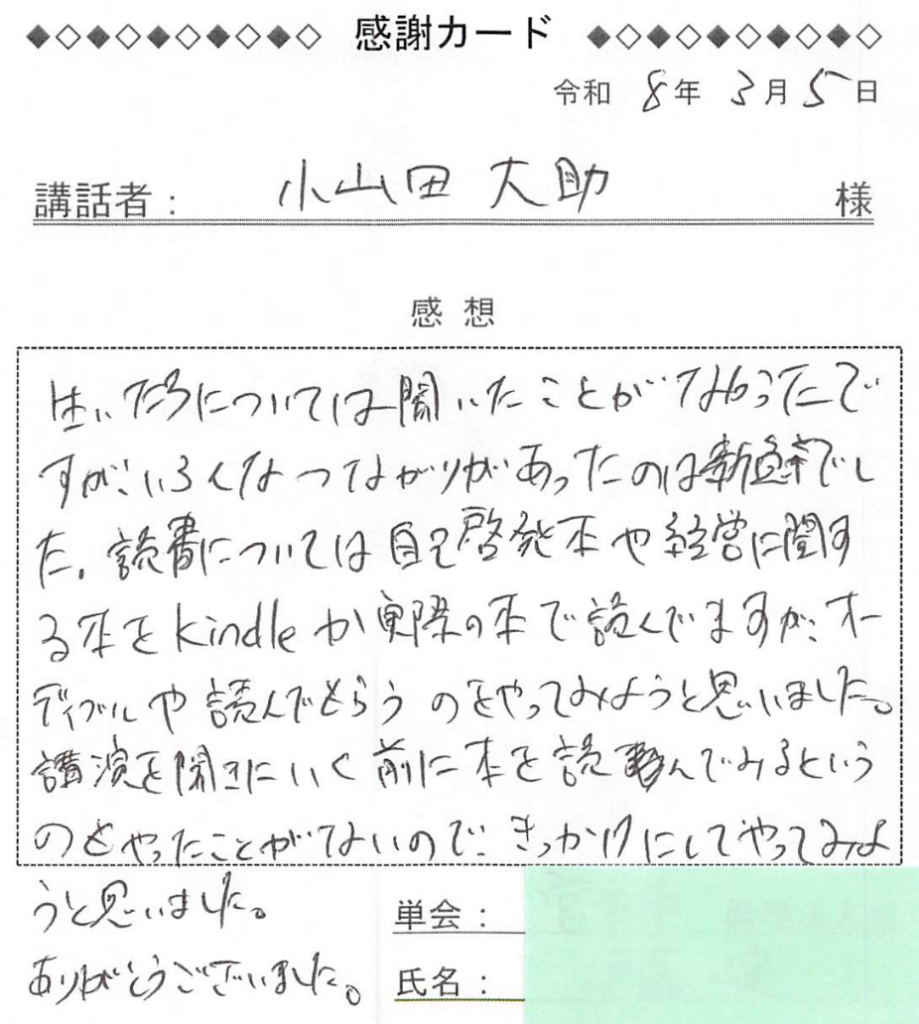 ◆◇◆◇◆◇◆◇◆◇ 感謝カード ◆◇◆◇◆◇◆◇◆◇
令和 8年 3月 5日
講話者： 小山田 大助 様
感 想
生いたちについては聞いたことがなかったで
すが、いろんなつながりがあったのは新鮮でし
た。読書については自己啓発本や経営に関す
る本をkindleか実際の本で読んでますが、オー
ディブルや読んでもらうのをやってみようと思いました。
講演を聞きにいく前に本を読んでみるという
のをやったことがないので、きっかけにしてやってみよ
うと思いました。
ありがとうございました。
単会：
氏名：